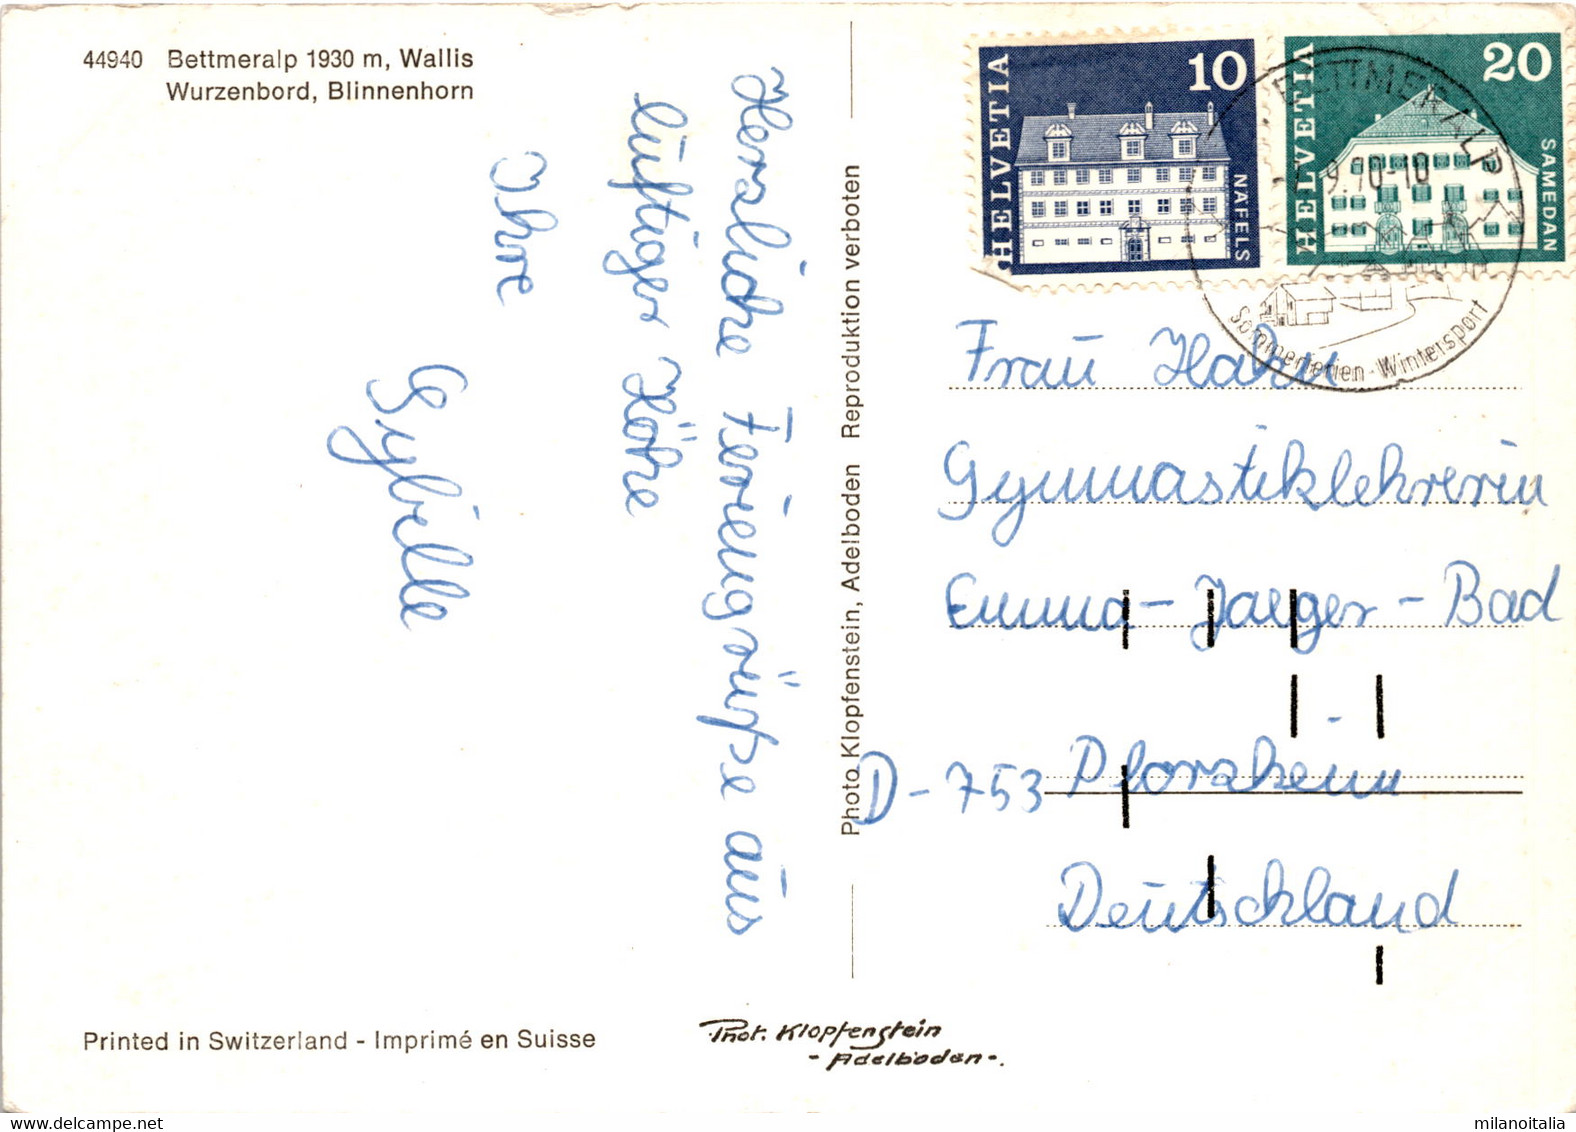 44940 Bettmeralp 1930 m, Wallis
Wurzenbord, Blinnenhorn
Herzliche Feriengrüße aus
luftiger Höhe
Ihre
Sybille
Photo Klopfenstein, Adelboden Reproduktion verboten
HELVETIA 10 NÄFELS
HELVETIA 20 SAMEDAN
BETTMERALP
9.70-10
Sommerferien-Wintersport
Frau Hahn
Gymnastiklehrerin
Emma-Jaeger-Bad
D-753 Pforzheim
Deutschland
Printed in Switzerland - Imprimé en Suisse
Phot. Klopfenstein
- Adelboden -.
milanoitalia